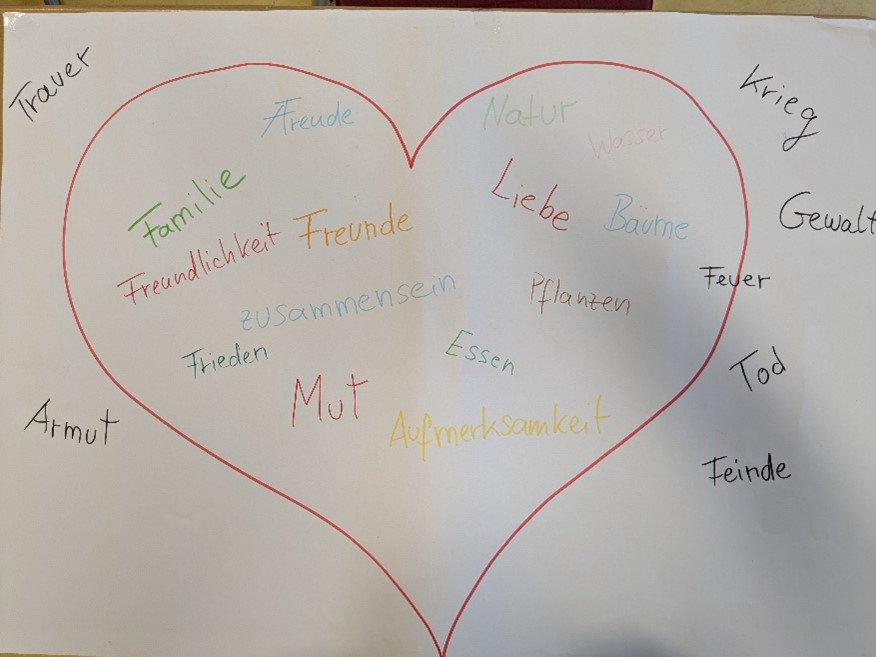 Trauer
Freude
Natur
Krieg
Wasser
Familie
Liebe
Freunde
Bäume
Gewalt
Freundlichkeit
Feuer
Pflanzen
zusammensein
Frieden
Essen
Tod
Mut
Armut
Aufmerksamkeit
Feinde